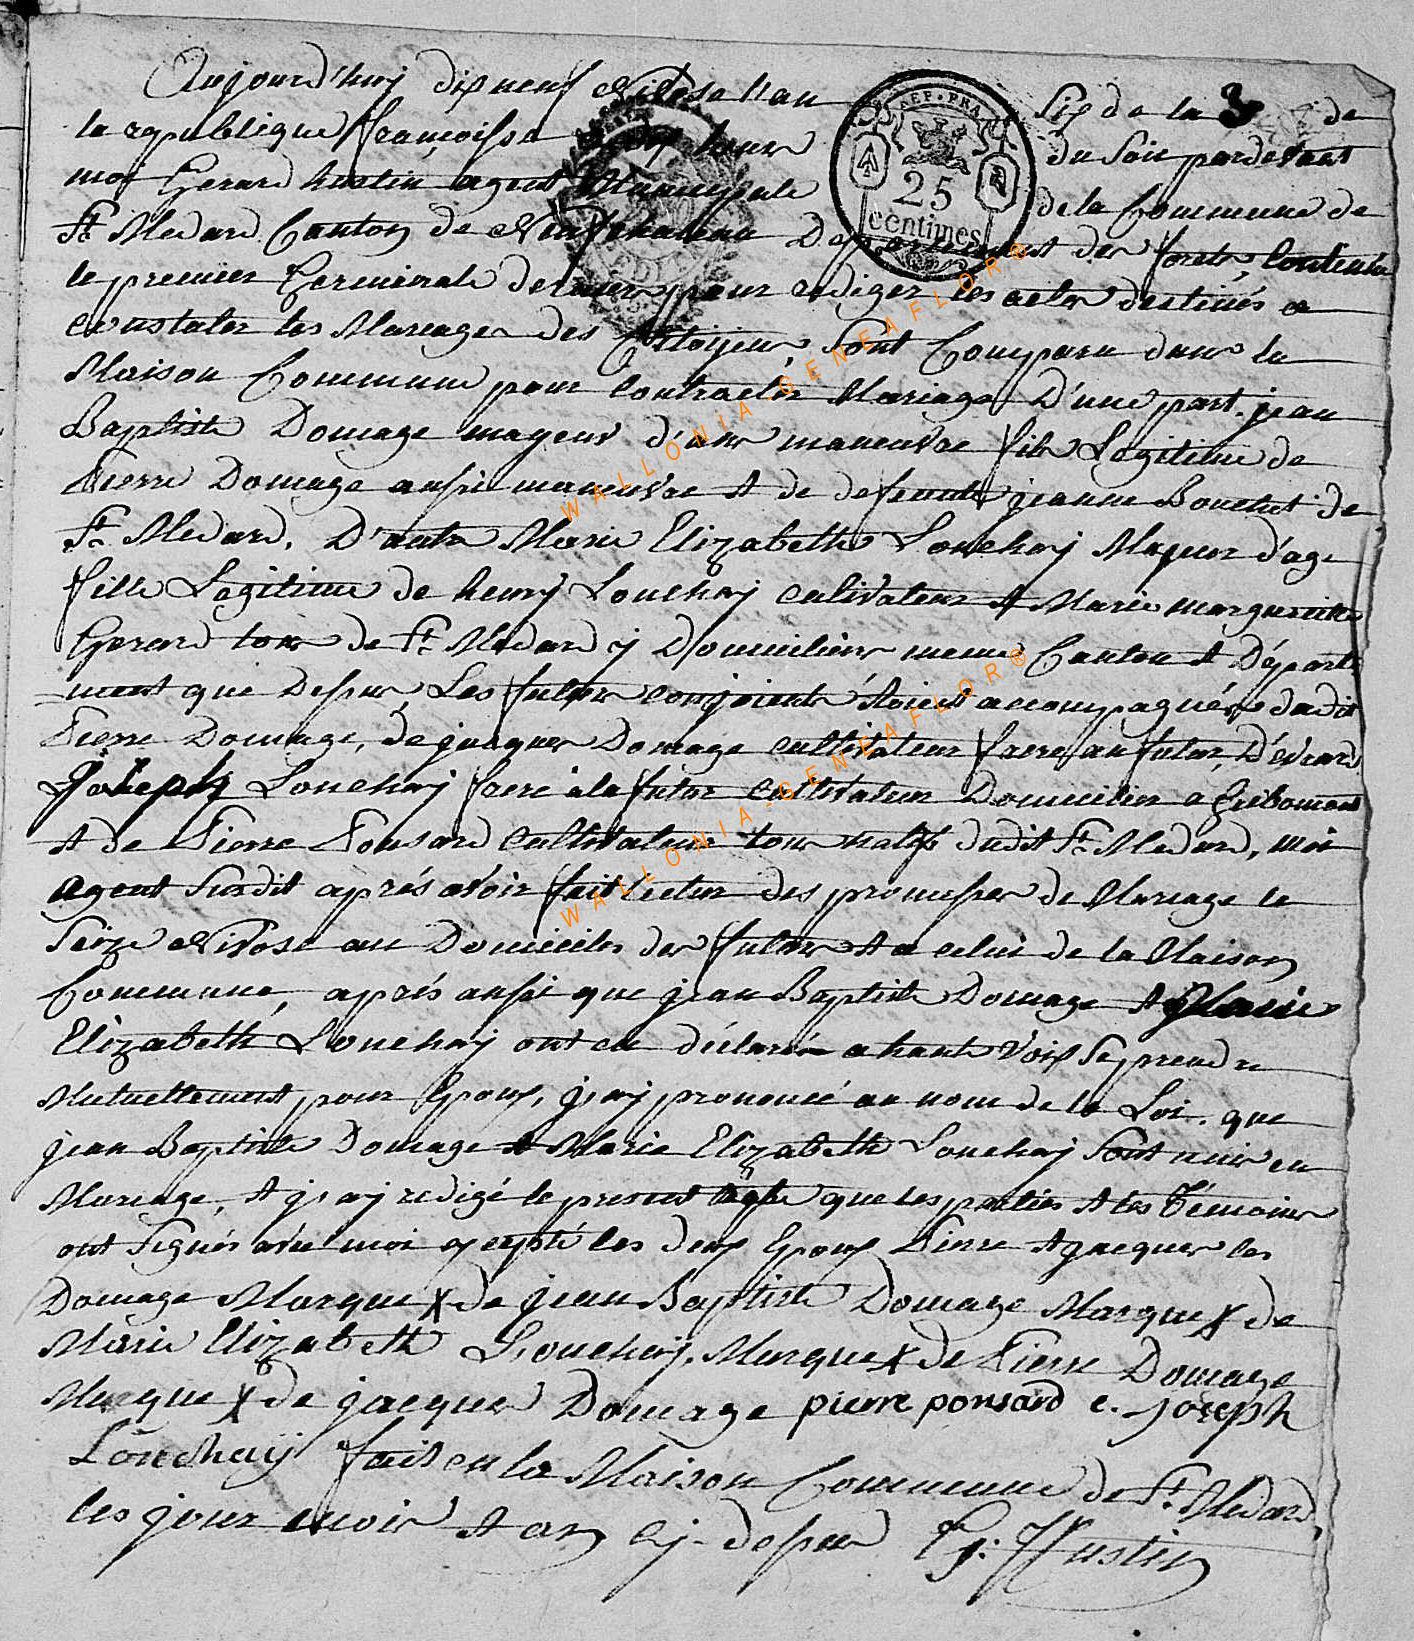 Aujourd'huy dix neuf Nivose l'an six de la 3 de
la republique françoisse a six heures du soir pardevant
moy Gerard hustin agent Municipale de la Commune de
St. Medard Canton de Neufchateau Departement des forets, Continué
le premier Germinale dernier pour rediger les actes destinés a
constater les Mareages des Citoijens, sont Comparu dans la
Maison Commune pour contracter Mariage D'une part. jean
Baptiste Domage mayeur d'ans maneuvre fils Legitime de
Pierre Domage aussi maneuvre et de defeunte jeanne Bouchet de
St. Medard, D'autre Marie Elizabeth Louchaij Majeur d'age
fille Legitime de henry Louchaij cultivateur et Marie margueritte
Gerard tous de St. Medard y Domiciliers meme Canton et Départe
=ment que Dessus, Les futurs conjoients étoient accompagnées dudit
Pierre Domage, de jacques Domage cultivateur frere au futur, D'evrard
Joseph Louchaij frere à la futur cultivateur Domicilier a Gribomont
et de Pierre Ponsard cultivateur tous natifs dudit St. Medard, moi
agent susdit aprés avoir fait lectur des promesses de Mareage le
seize Nivose au Domiciles des futurs et a celui de la Maison
Commune, aprés aussi que jean Baptiste Domage et Marie
Elizabeth Louchaij ont eu déclaré a haute voix se prendre
Mutuellement pour Epoux, j'aij prononcé au nom de la Loi. que
jean Baptiste Domage et Marie Elizabeth Louchaij sont unis en
Mareage, et j'aij redigé le present acte que les parties et les Témoins
ont signés avec moi excepté les deux Epoux Pierre et jacques les
Domage Marque X de jean Baptiste Domage Marque X de
Marie Elizabeth Louchaij, Marque X de Pierre Domage
Marque X de jacques Domage pierre ponsard e. joseph
Louchaij fait en la Maison Commune de St. Medard,
les jour mois et an cij-dessus G: Hustin
REP. FRA.
25
centimes
WALLONIA-GENEAFLOR®
WALLONIA-GENEAFLOR®